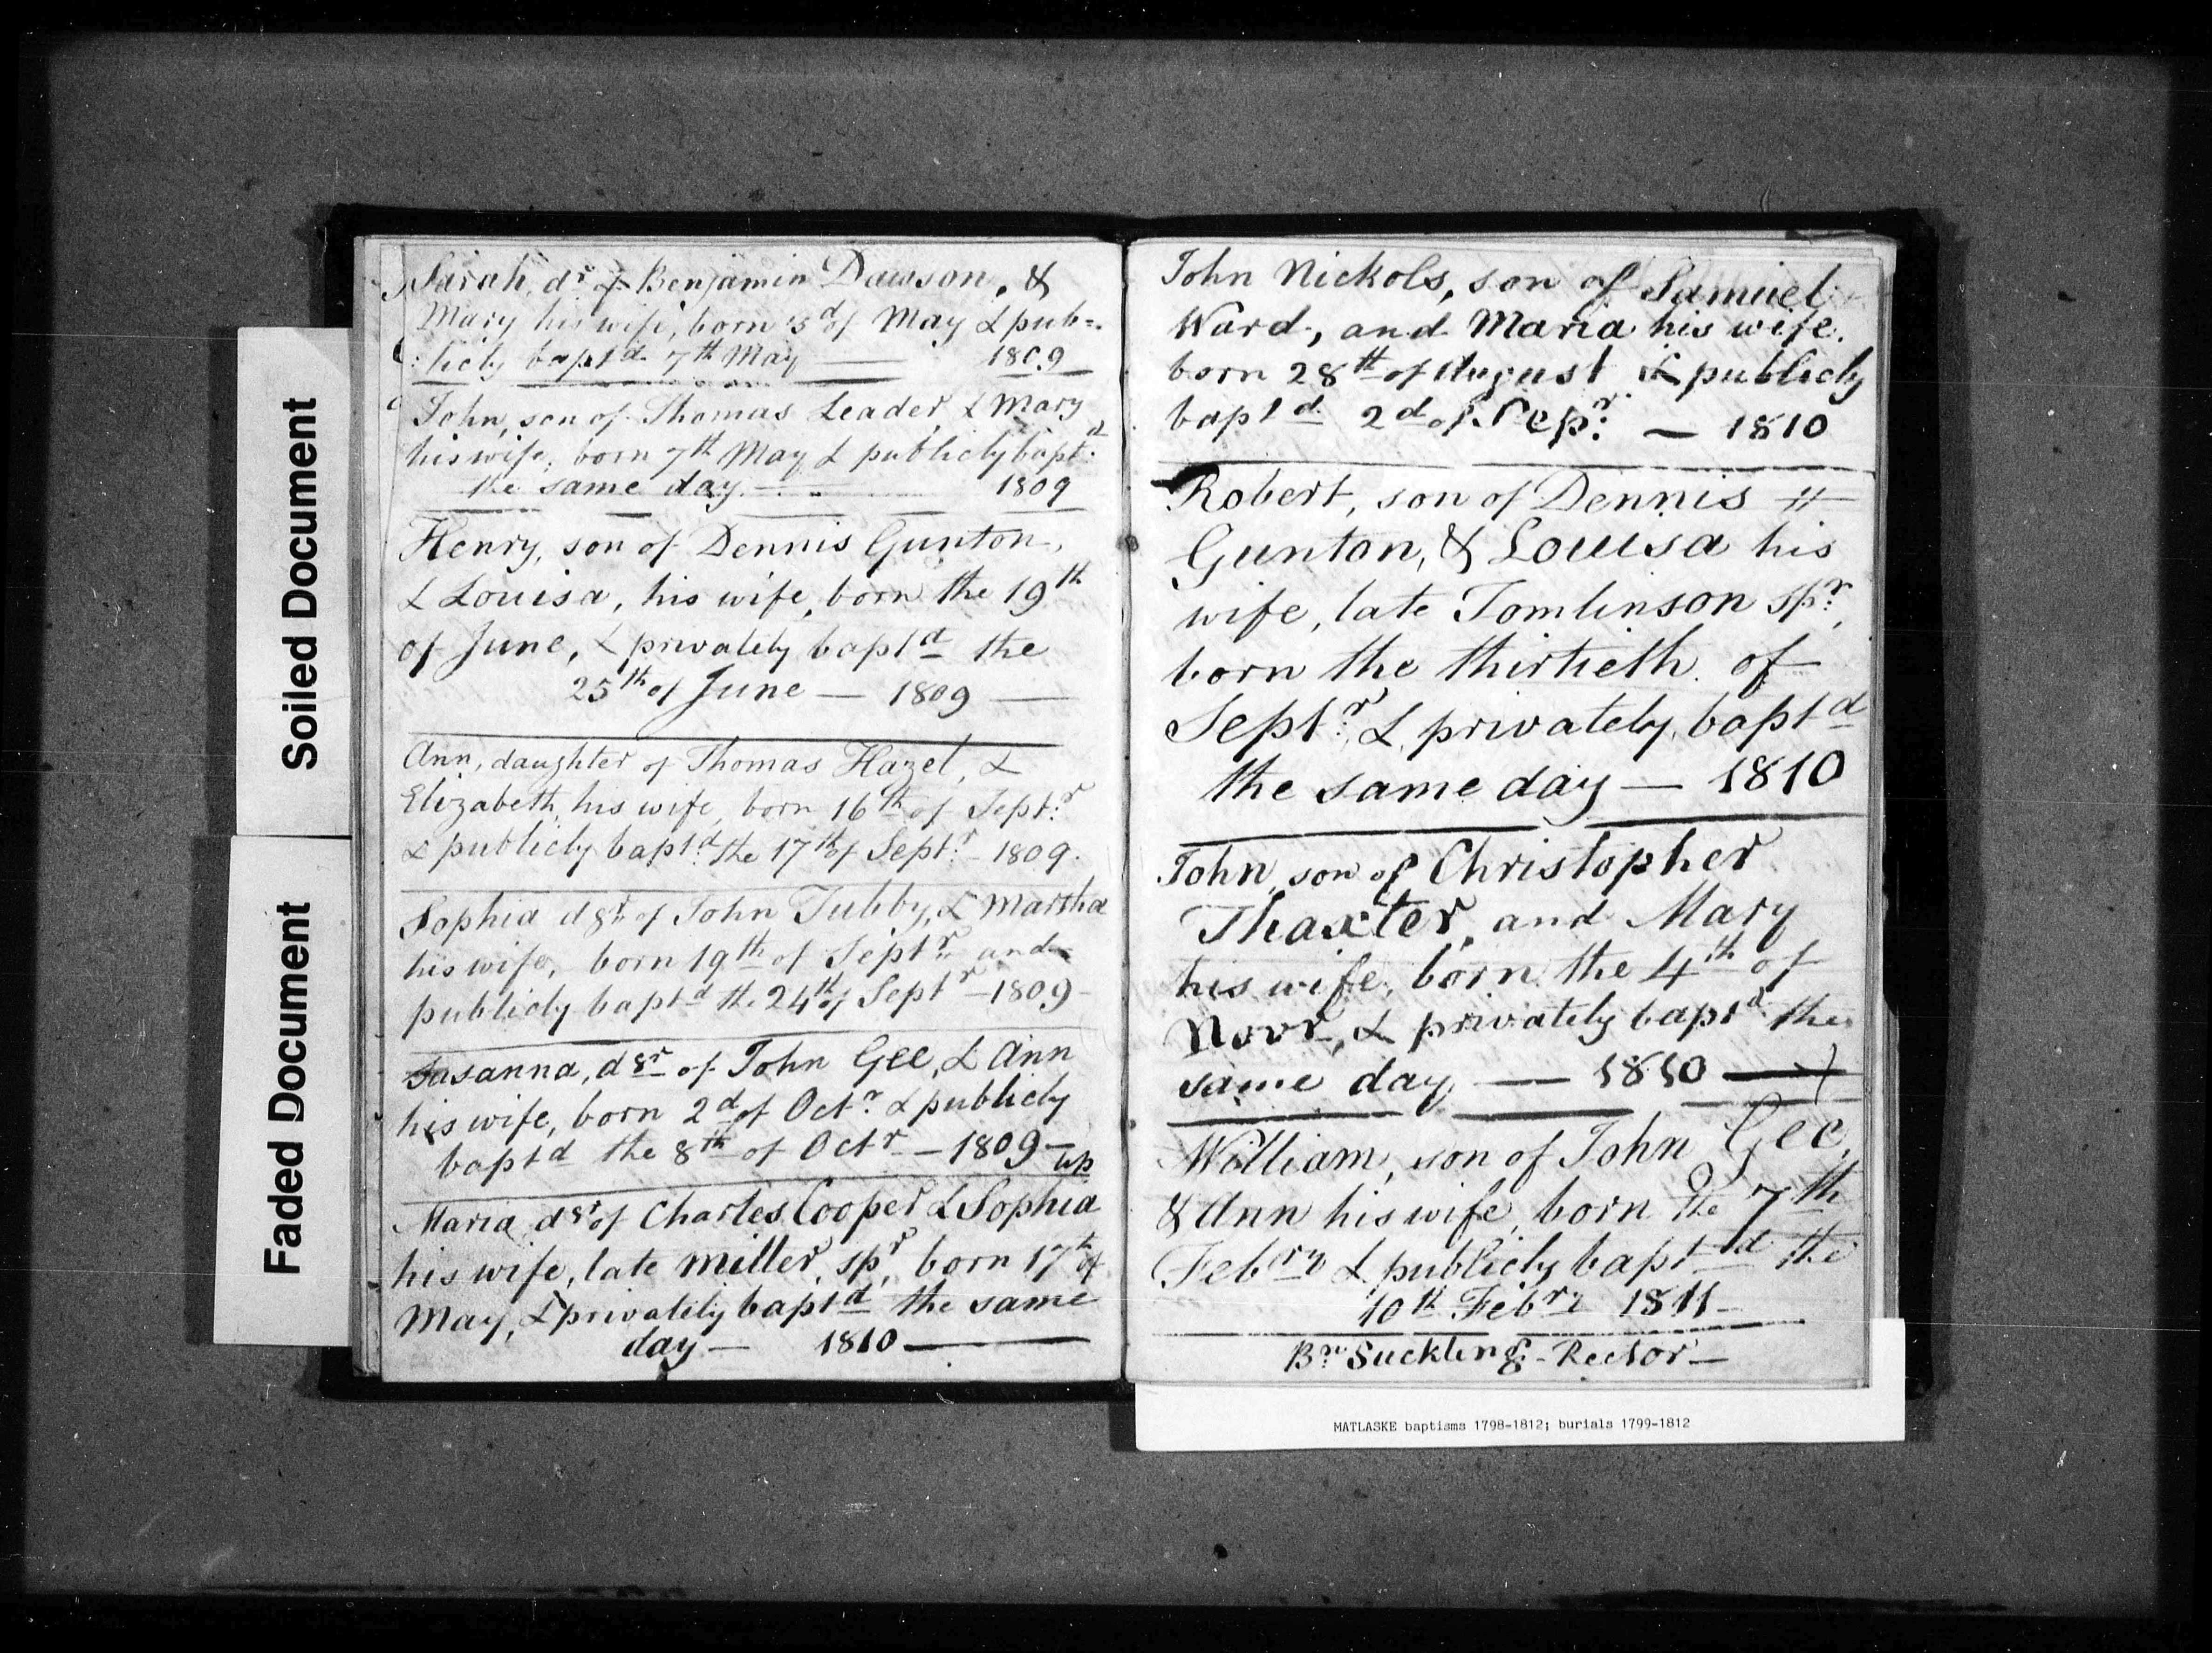 Soiled Document
Faded Document
Sarah, dr. of Benjamin Dawson, &
Mary his wife, born 5d of May & pub=
:licly bapt.d 7th May — 1809
John, son of Thomas Leader, & Mary
his wife, born 7th May & publicly bapt.d
the same day — 1809
Henry, son of Dennis Gunton,
& Louisa, his wife, born the 19th
of June, & privately bapt.d the
25th of June — 1809 —
Ann, daughter of Thomas Hazel, &
Elizabeth, his wife, born 16th of Sept.r
& publicly bapt.d the 17th of Sept.r - 1809.
Sophia dgr. of John Tubby, & Martha
his wife, born 19th of Sept.r and
publicly bapt.d the 24th of Sept.r - 1809 -
Susanna, dgr. of John Gee, & Ann
his wife, born 2d of Oct.r & publicly
bapt.d the 8th of Oct.r — 1809 —
Maria dgr. of Charles Cooper & Sophia
his wife, late Miller, sp.r, born 17th of
May, & privately bapt.d the same
day — 1810 —
John Nickols, son of Samuel
Ward, and Maria his wife.
born 28th of August & publicly
bapt.d 2d of Sep.r — 1810
Robert, son of Dennis
Gunton, & Louisa his
wife, late Tomlinson sp.r,
born the thirtieth of
Sept.r & privately bapt.d
the same day — 1810
John, son of Christopher
Thaxter, and Mary
his wife, born the 4th of
Novr, & privately bapt.d the
same day — 1810 —
William, son of John Gee,
& Ann his wife, born the 7th
Feb.ry & publicly bapt.d the
10th Feb.ry 1811 —
Bn. Suckling - Rector —
MATLASKE baptisms 1798-1812; burials 1799-1812